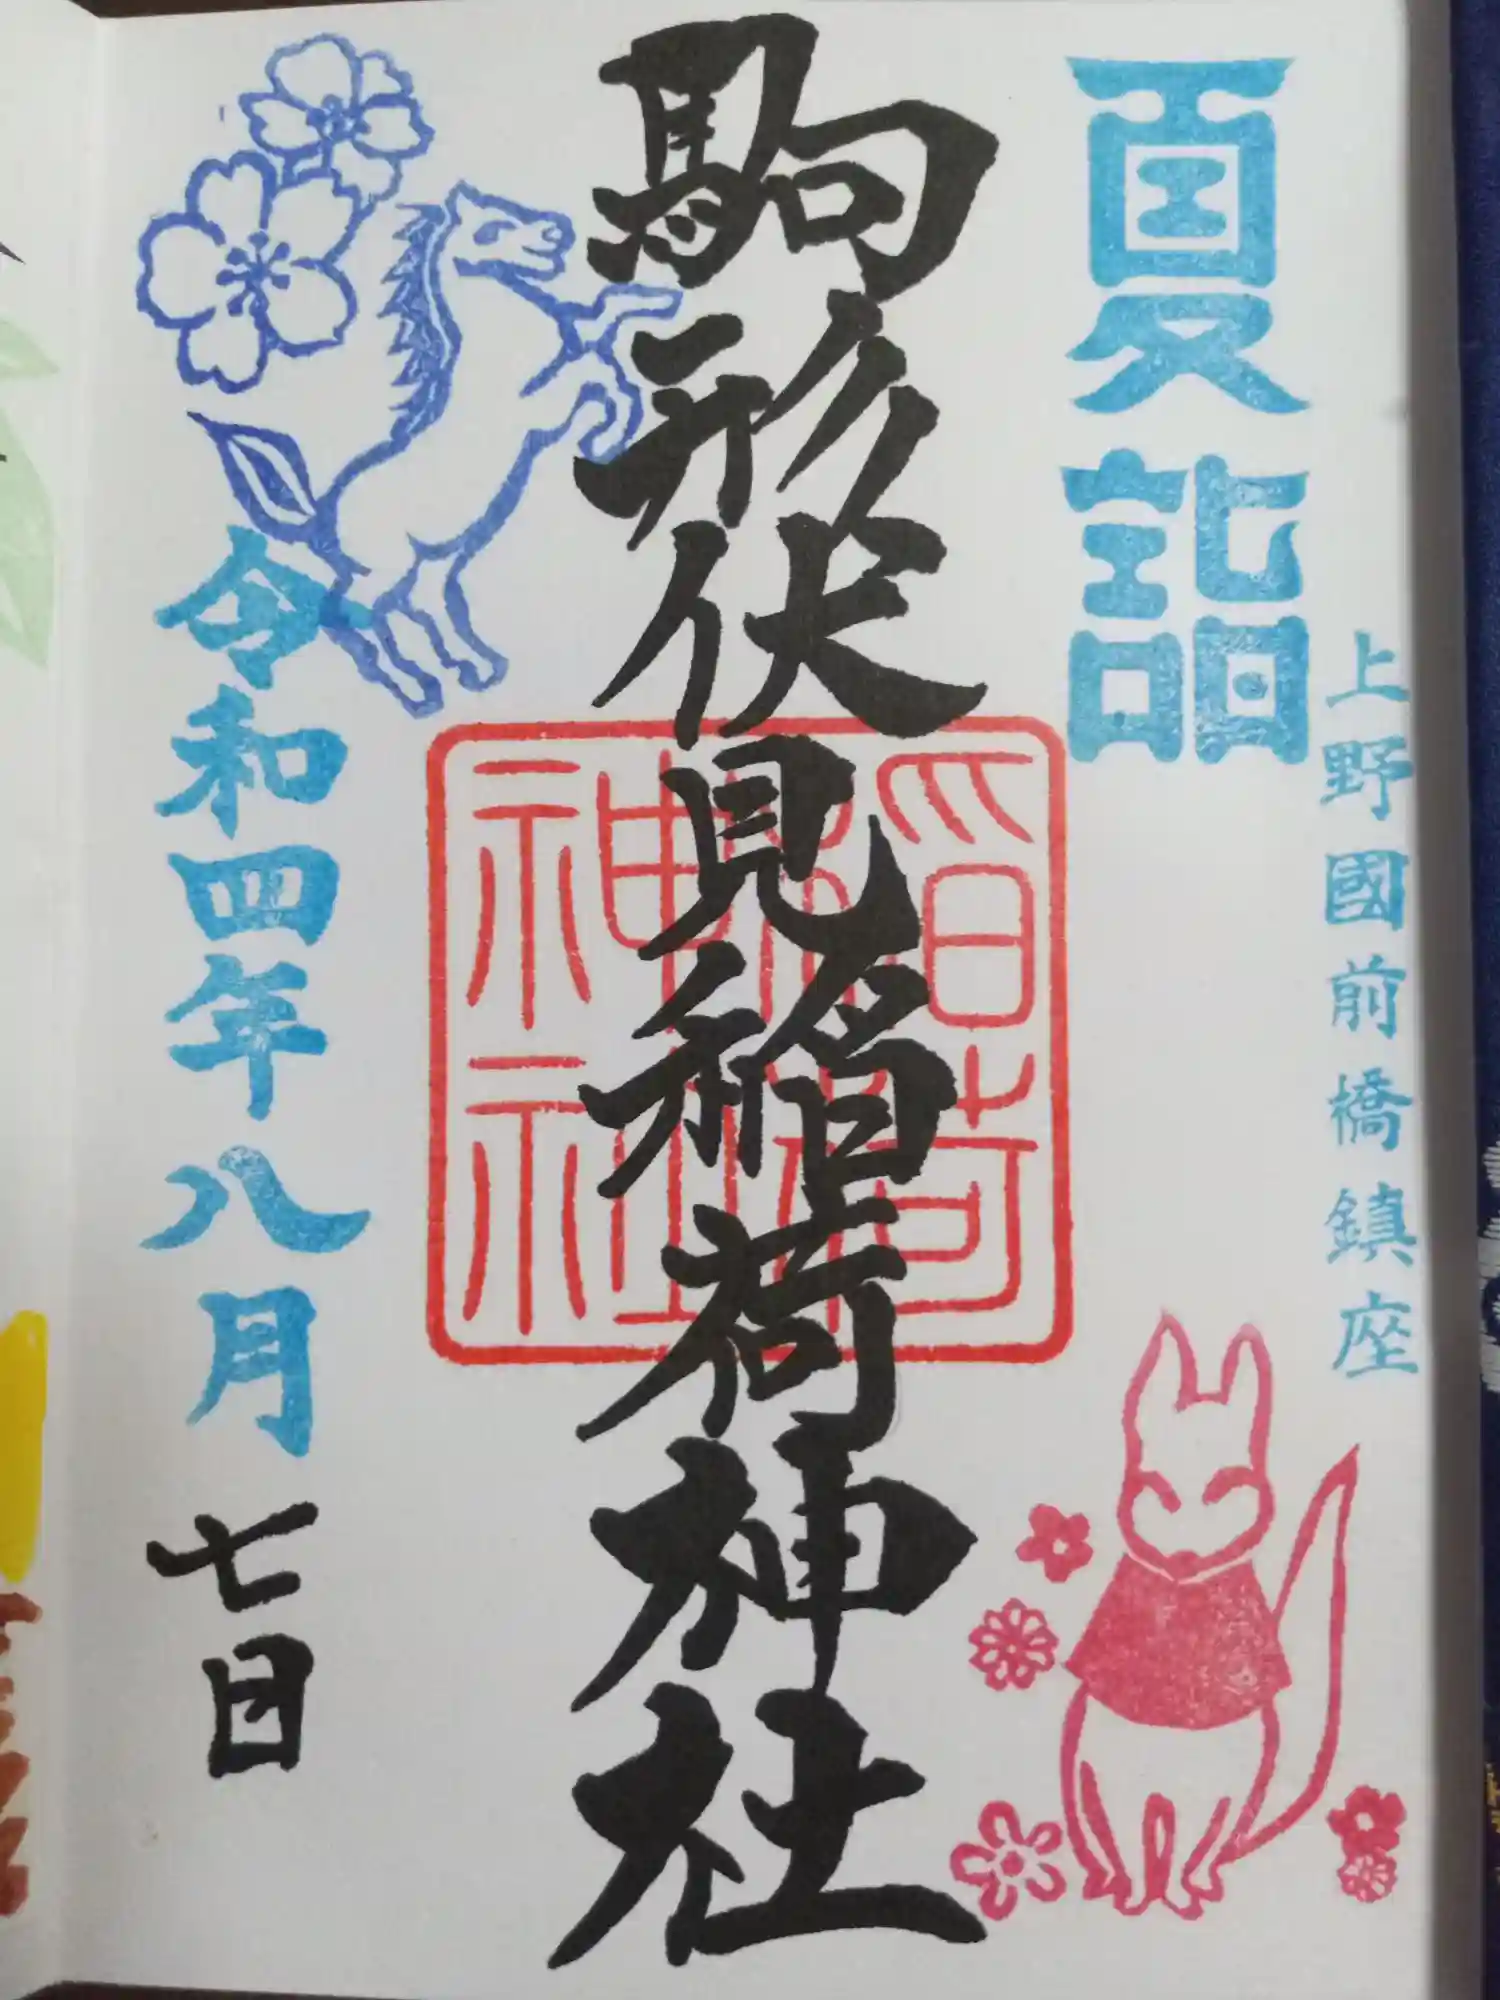 上野國前橋鎮座
夏詣
駒形伏見稲荷神社
稲荷
神社
令和四年八月七日